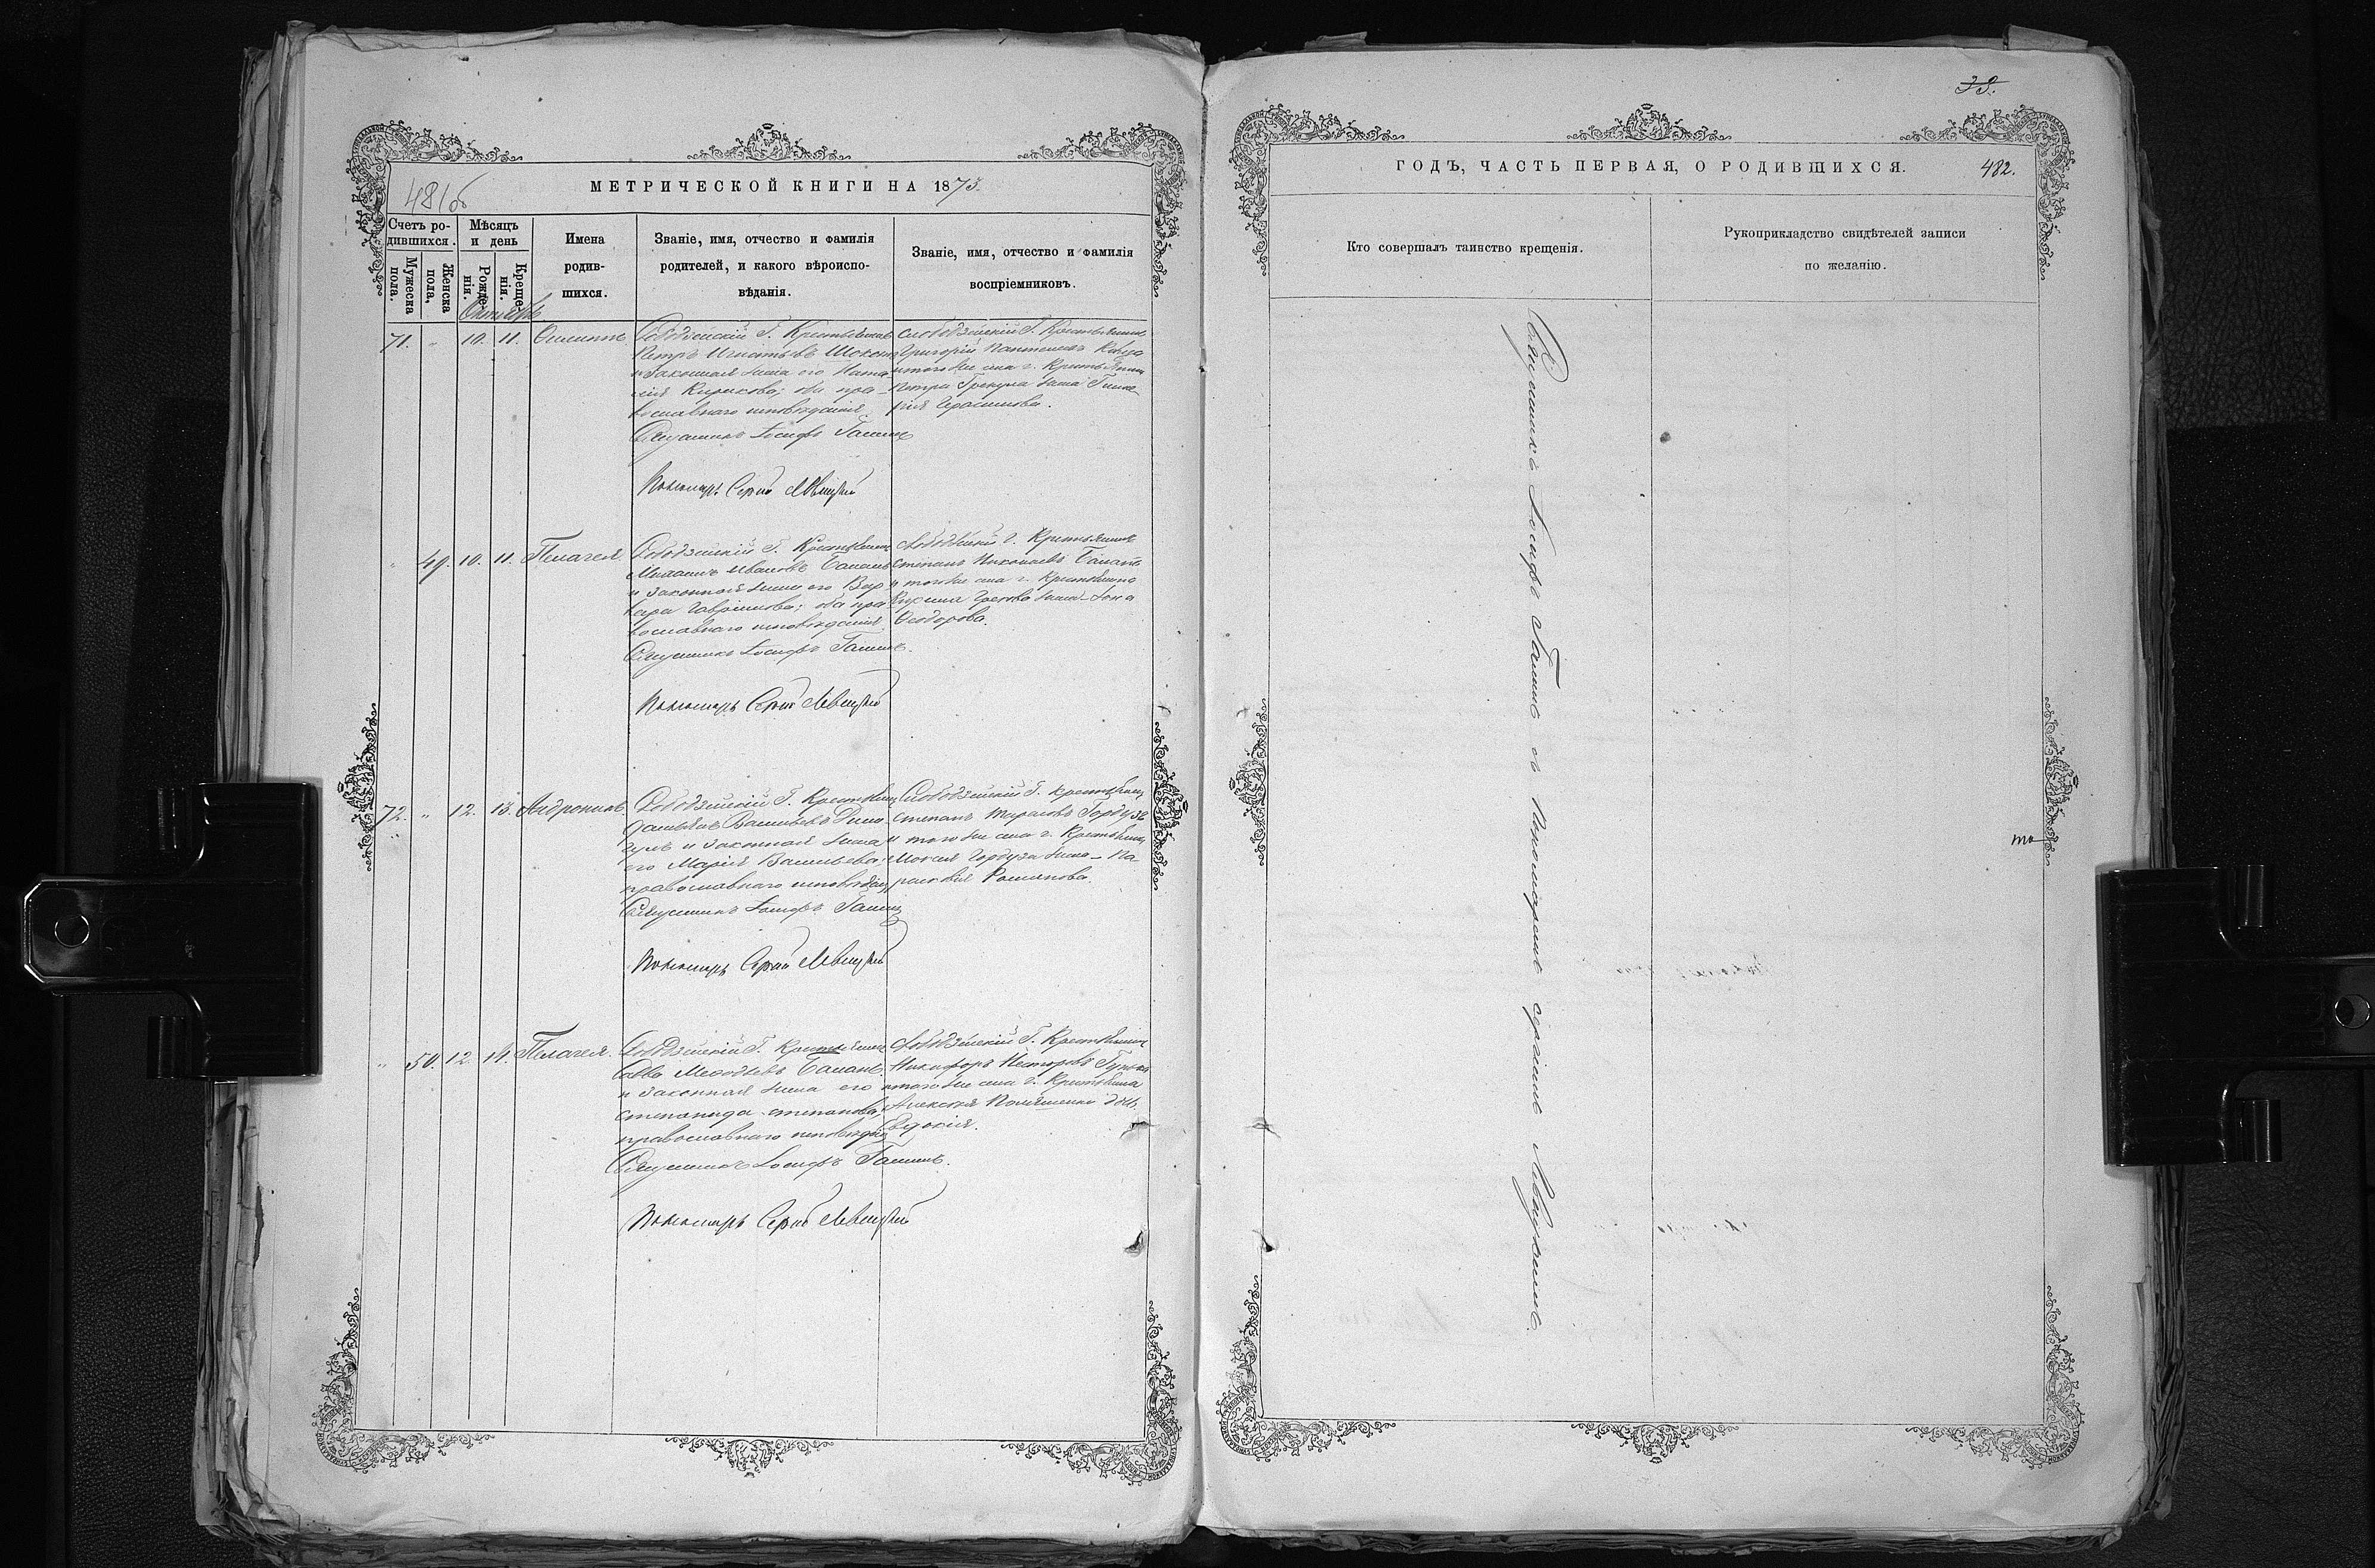 МЕТРИЧЕСКОЙ КНИГИ НА 1873
481об
Счетъ ро-
дившихся.
Мужеска
пола.
Женска
пола,
Мѣсяцъ
и день
Рожде-
нія.
Креще-
нія.
Имена
родив-
шихся.
Званіе, имя, отчество и фамилія
родителей, и какого вѣроиспо-
вѣданія.
Званіе, имя, отчество и фамилія
воспріемниковъ.
Октябрь
71. " 10. 11. Филиппъ
Слободзейскій Г. Крестьянинъ
Петръ Игнатьевъ
и законная жена его Ната
лія Кирилова; оба пра-
вославнаго исповѣданія.
Священникъ Іосифъ
Пономарь Сергій Левицкій
Слободзейскій Г. Крестьянинъ
Григорій
и того же села г. Крестьянина
Петра жена
рія Герасимова.
" 49. 10. 11. Пелагея
Слободзейскій Г. Крестьянинъ
Михаилъ Ивановъ Баланъ
и законная жена его Вар
вара Гаврилова; оба пра
вославнаго исповѣданія.
Священникъ Іосифъ
Пономарь Сергій Левицкій
Слободзейскій Г. Крестьянинъ
Степанъ Николаевъ Баланъ
и того же села г. Крестьянина
жена
Феодорова.
72. " 12. 13. Андроникъ
Слободзейскій Г. Крестьянинъ
Васильевъ
и законная жена
его Марія Васильева;
православнаго исповѣдан
Священникъ Іосифъ
Пономарь Сергій Левицкій
Слободзейскій Г. Крестьянин
Степанъ Тарасовъ
и того же села г. Крестьянин
жена - Па
раскевія Романова.
" 50. 12. 14. Пелагея.
Слободзейскій Г. Крестьянинъ
Савва Меѳодіевъ Баланъ
и законная жена его
Степанида Степанова,
православнаго исповѣдан
Священникъ Іосифъ
Пономарь Сергій Левицкій
Слободзейскій Г. Крестьянинъ
Никифоръ Несторовъ
и того же села г. Крестьянина
Алексѣя дочь
Евдокія.
33.
ГОДЪ, ЧАСТЬ ПЕРВАЯ, О РОДИВШИХСЯ.
482.
Кто совершалъ таинство крещенія.
Рукоприкладство свидѣтелей записи
по желанію.
Священникъ Іосифъ съ Пономаремъ Сергіемъ Левицкимъ